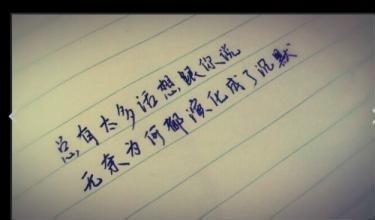 总有太多话想跟你说
无奈为何都演化成了沉默